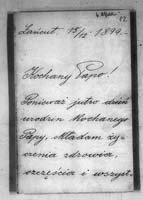 12
Łańcut 15/12 1899.
Kochany Papo!
Ponieważ jutro dzień
urodzin Kochanego
Papy, składam ży-
czenia zdrowia,
szczęścia i wszyst-